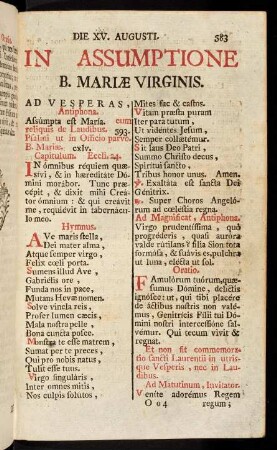 DIE XV. AUGUSTI. 383
IN ASSUMPTIONE
B. MARIÆ VIRGINIS.
AD VESPERAS,
Antiphona.
Assumpta est Maria. cum
reliquis de Laudibus. 393.
Psalmi ut in Officio parvo
B. Mariæ. cxlv.
Capitulum. Eccli. 24.
IN ómnibus réquiem quæ-
sívi, & in hæreditate Dó-
mini morábor. Tunc præ-
cépit, & dixit mihi Creá-
tor ómnium: & qui creávit
me, requiévit in tabernácu-
lo meo.
Hymnus.
AVe maris stella,
Dei mater alma,
Atque semper virgo,
Felix cœli porta.
Sumens illud Ave,
Gabriélis ore,
Funda nos in pace,
Mutans Hevæ nomen.
Solve vincla reis,
Profer lumen cæcis,
Mala nostra pelle,
Bona cuncta posce.
Monstra te esse matrem,
Sumat per te preces,
Qui pro nobis natus,
Tulit esse tuus.
Virgo singuláris,
Inter omnes mitis,
Nos culpis solútos,
Mites fac & castos.
Vitam præsta puram
Iter para tutum,
Ut vidéntes Jesum,
Semper collætémur.
Sit laus Deo Patri,
Summo Christo decus,
Spirítui sancto,
Tribus honor unus. Amen.
℣. Exaltáta est sancta Dei
Génitrix.
℟. Super Choros Angeló-
rum ad cœléstia regna.
Ad Magnificat, Antiphona.
Virgo prudentíssima, quo
progréderis quasi auróra
valde rútilans? fília Sion tota
formósa, & suávis es, pulchra
ut luna, elécta ut sol.
Oratio.
FAmulórum tuórum, quæ-
sumus Dómine, delíctis
ignósce: ut, qui tibi placére
de áctibus nostris non valé-
mus, Genitrícis Fílii tui Dó-
mini nostri intercessióne sal-
vémur. Qui tecum vivit &
regnat.
Et non fit commemora-
tio sancti Laurentii in utris-
que Vesperis, nec in Lau-
dibus.
Ad Matutinum, Invitator.
VEníte adorémus Regem
Oo4 regum;